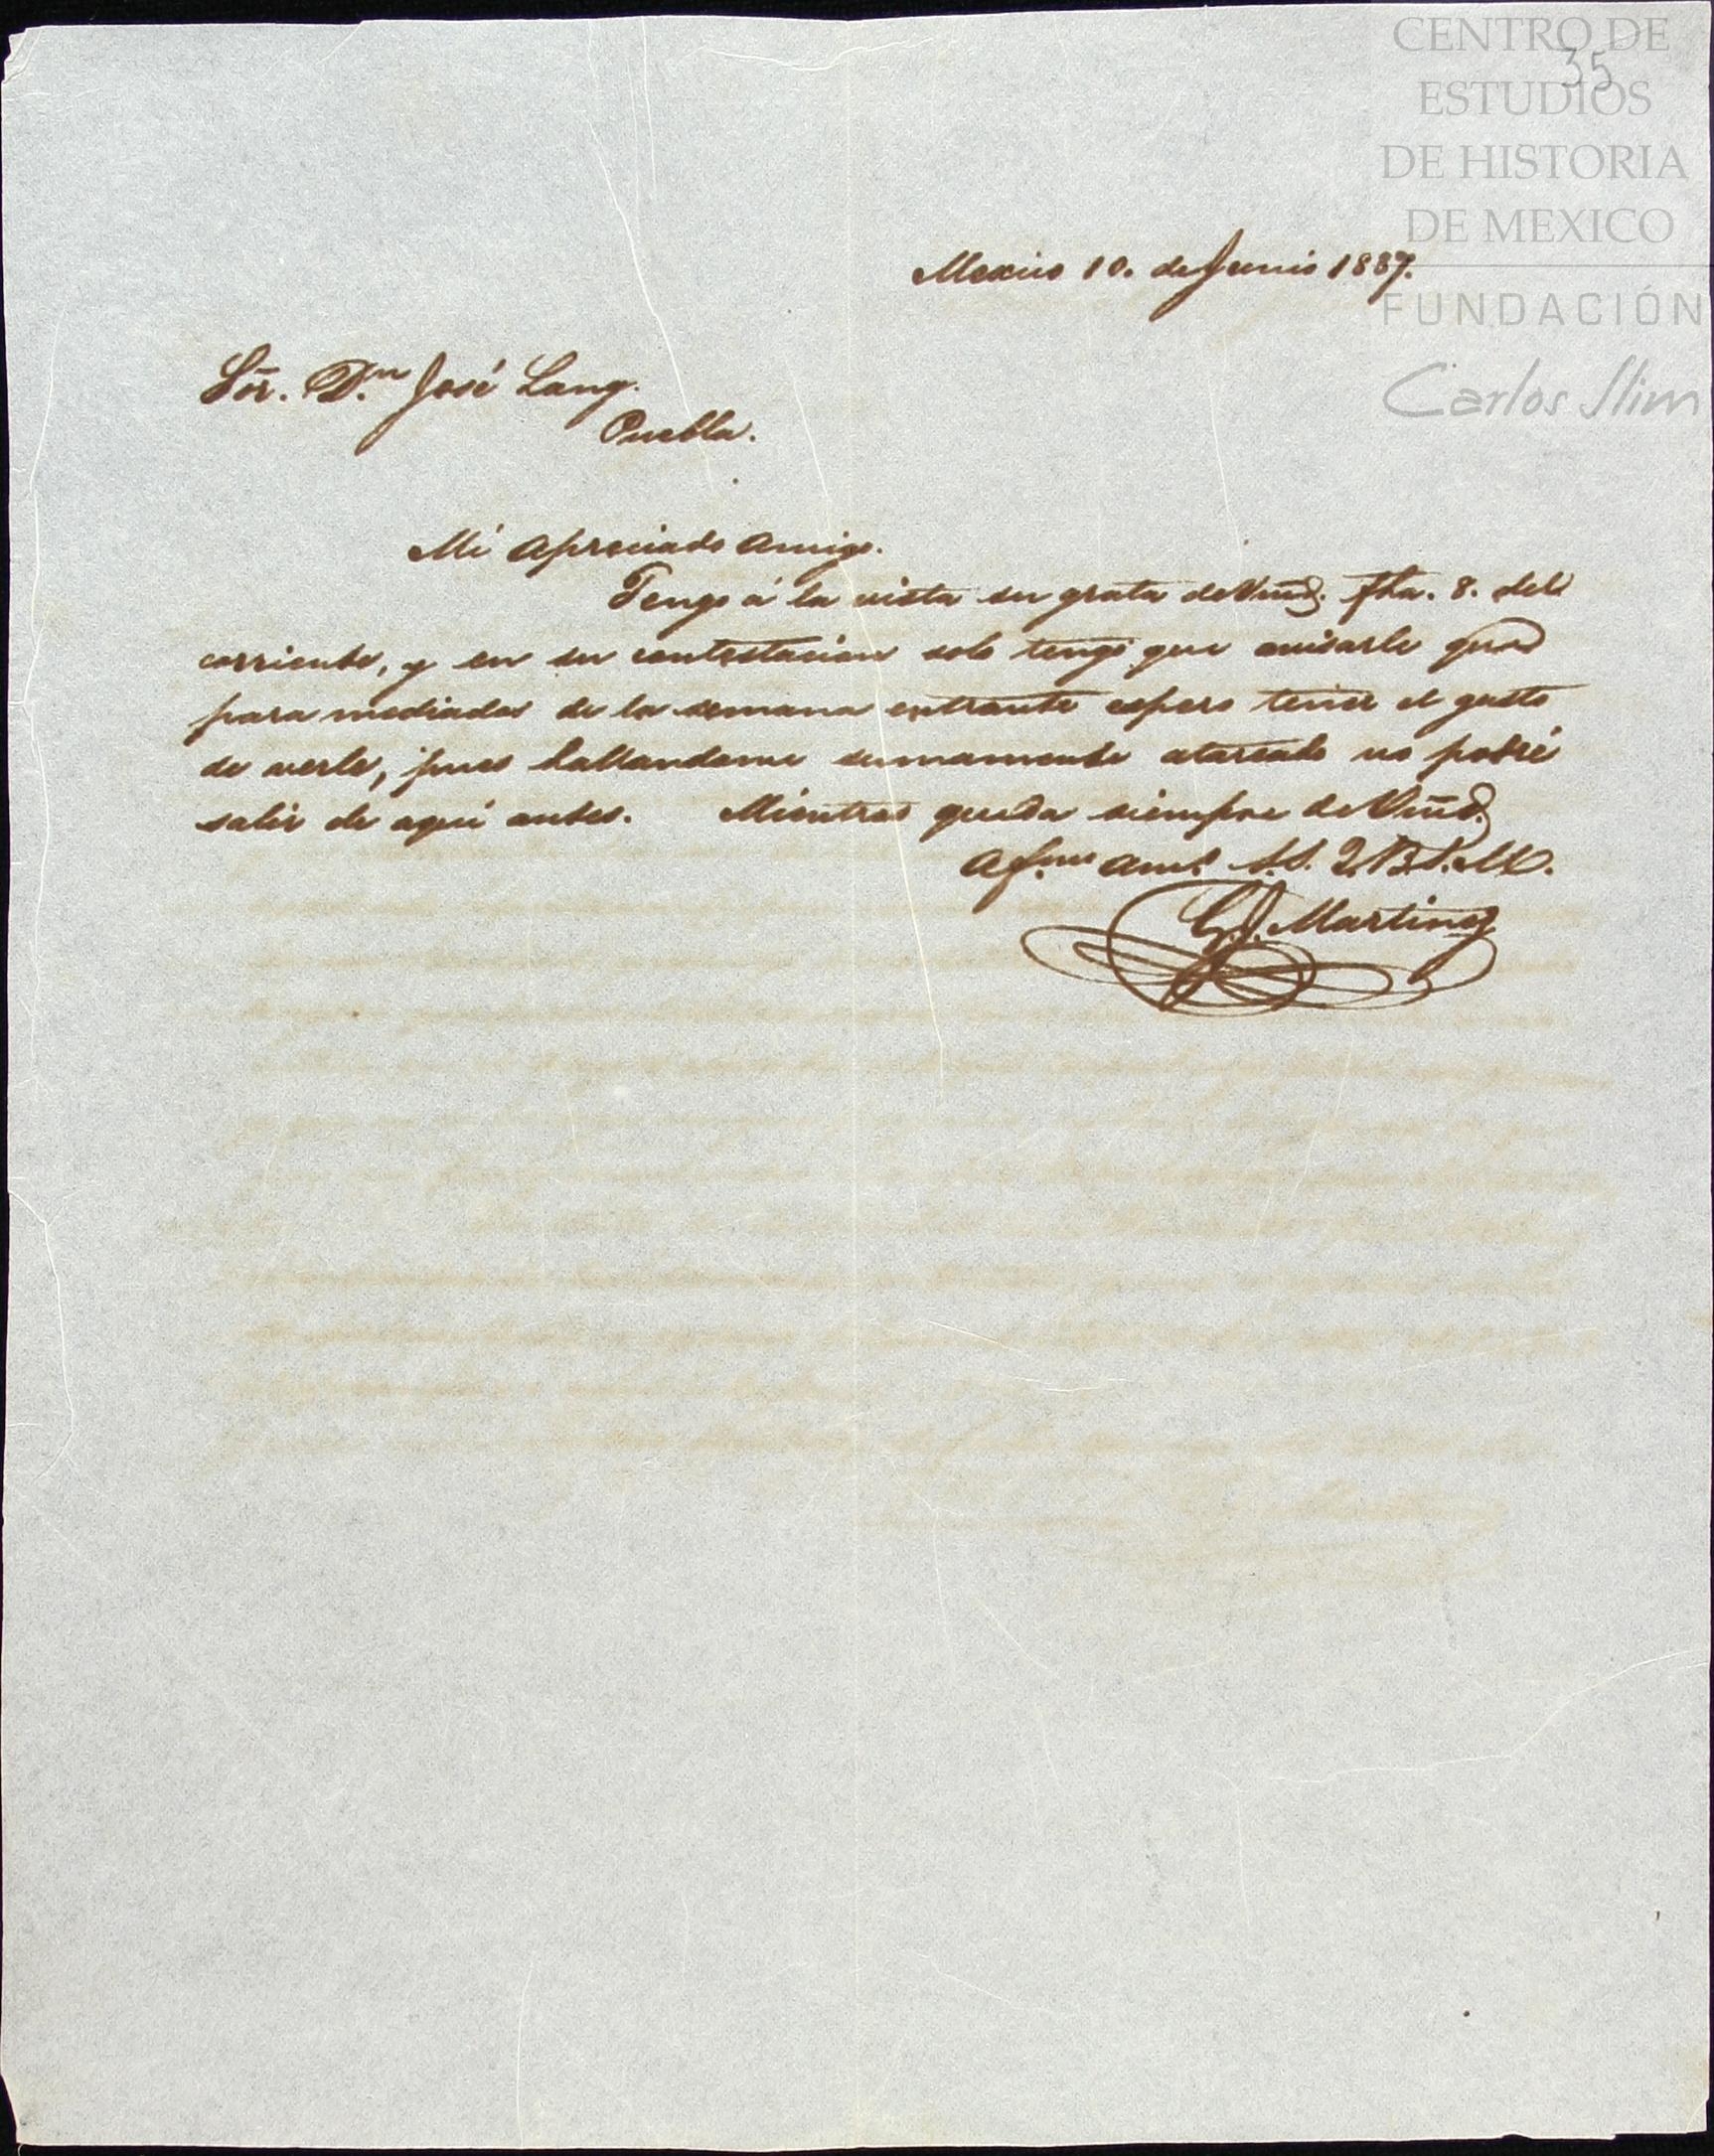 CENTRO DE
ESTUDIOS
DE HISTORIA
DE MEXICO
FUNDACIÓN
Carlos Slim
35
Mexico 10. de Junio 1887.
Sõr. D.n José Lang.
Puebla.
Mi Apreciado Amigo.
Tengo á la vista su grata de Vmd. fha. 8. del
corriente, y en su contestacion solo tengo que avisarle que
para mediados de la semana entrante espero tener el gusto
de verle, pues hallandome sumamente atareado no podré
salir de aquí antes. Mientras queda siempre de Vmd.
Af.mo Am.o S.S. Q.B.S.M.
G. J. Martinez